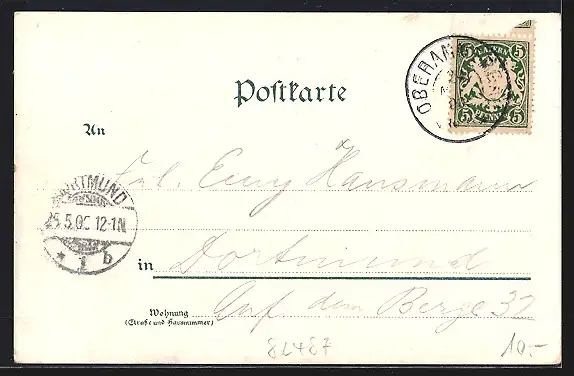 BAYERN
5 5
5 5
PFENNIG
OBERAM
Postkarte
An
Frl. Emy Hansmann
DORTMUND
25.5.0 12-1N
* 1 b
in Dortmund
Wohnung Auf dem Berge 32
(Straße und Hausnummer)
82487
10.-